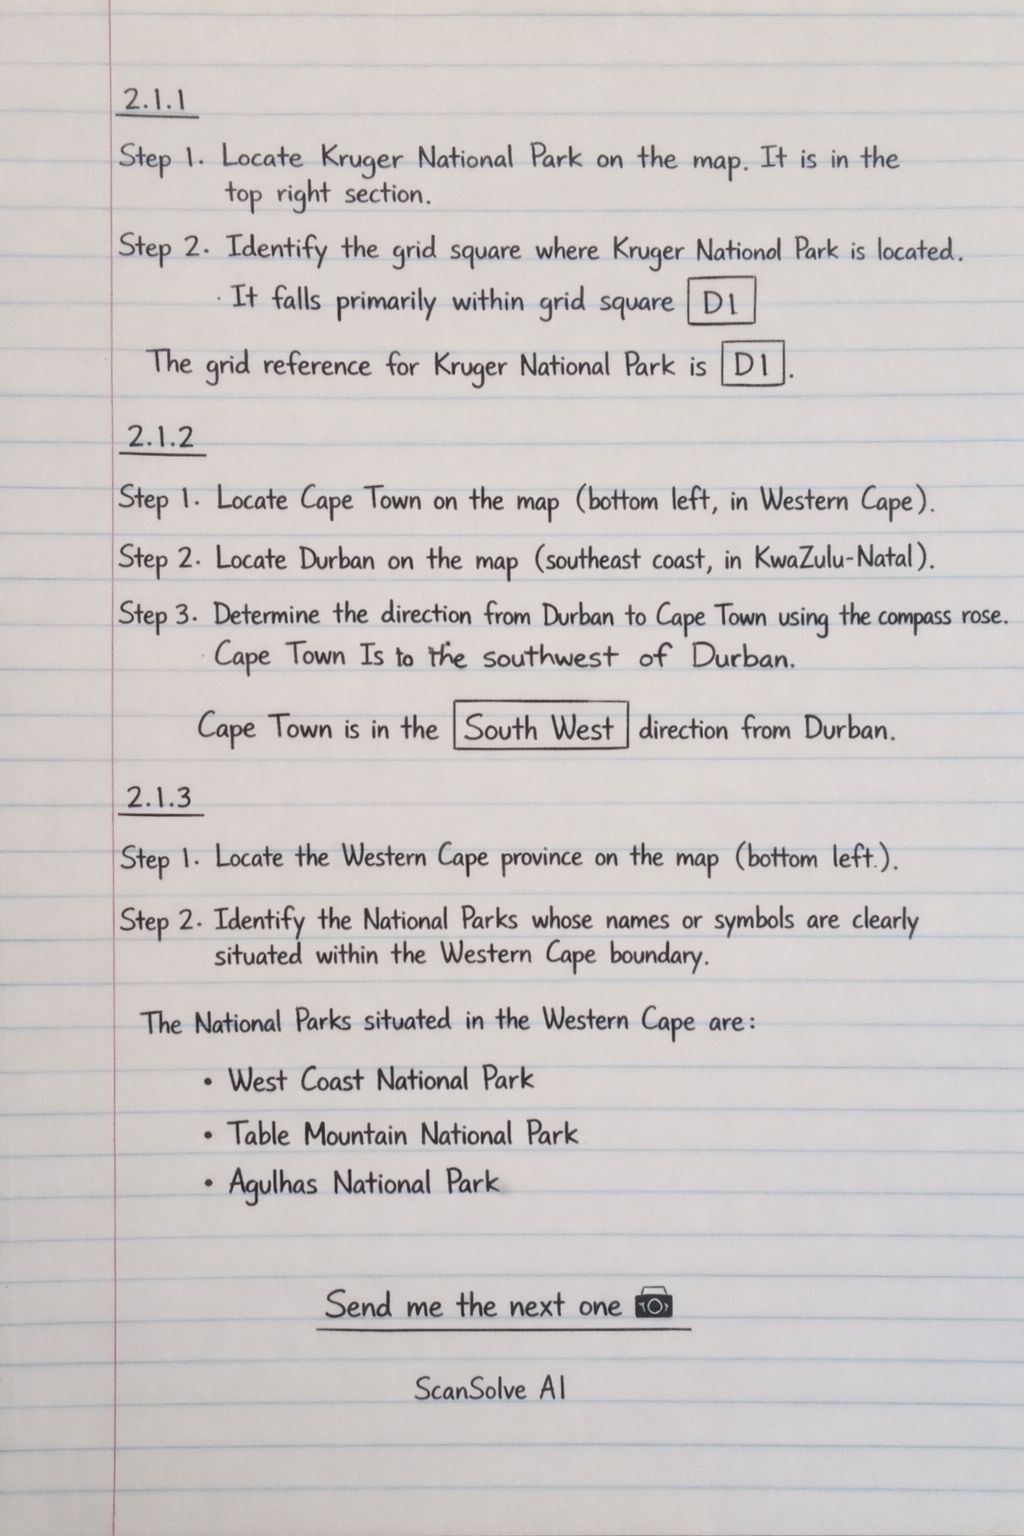 2.1.1
Step 1. Locate Kruger National Park on the map. It is in the
top right section.
Step 2. Identify the grid square where Kruger National Park is located.
· It falls primarily within grid square D1
The grid reference for Kruger National Park is D1.
2.1.2
Step 1. Locate Cape Town on the map (bottom left, in Western Cape).
Step 2. Locate Durban on the map (southeast coast, in KwaZulu-Natal).
Step 3. Determine the direction from Durban to Cape Town using the compass rose.
Cape Town Is to the southwest of Durban.
Cape Town is in the South West direction from Durban.
2.1.3
Step 1. Locate the Western Cape province on the map (bottom left.).
Step 2. Identify the National Parks whose names or symbols are clearly
situated within the Western Cape boundary.
The National Parks situated in the Western Cape are:
• West Coast National Park
• Table Mountain National Park
• Agulhas National Park
Send me the next one 📷
ScanSolve AI